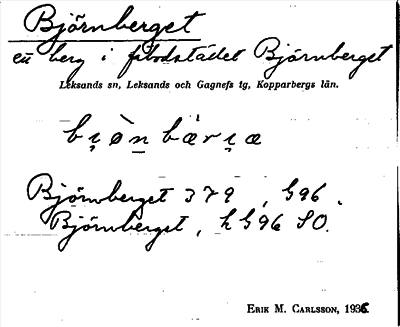 Björnberget
ett berg i fäbodstället Björnberget
Leksands sn, Leksands och Gagnefs tg, Kopparbergs län.
bi̯ø̀n bæ̀ri̯æ
Björnberget 379, G96.
Björnberget, h G96 SO.
ERIK M. CARLSSON, 1936.